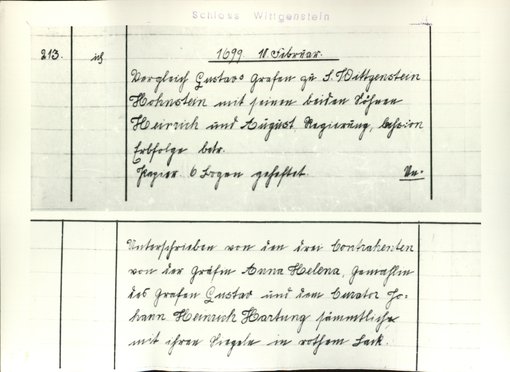 Schloss Wittgenstein
213. ich 1699 11. Februar.
Vergleich Gustavs Grafen zu S. Wittgenstein
Hohnstein mit seinen beiden Söhnen
Heinrich und August, Regierung,
Erbfolge betr.
Papier. 6 Bogen geheftet.
Unterschrieben von den drei Contrahenten
von der Gräfin Anna Helena, Gemahlin
des Grafen Gustav und dem Curator Jo-
hann Heinrich Hartung sämmtliche
mit ihren Siegeln in rothem Lack.